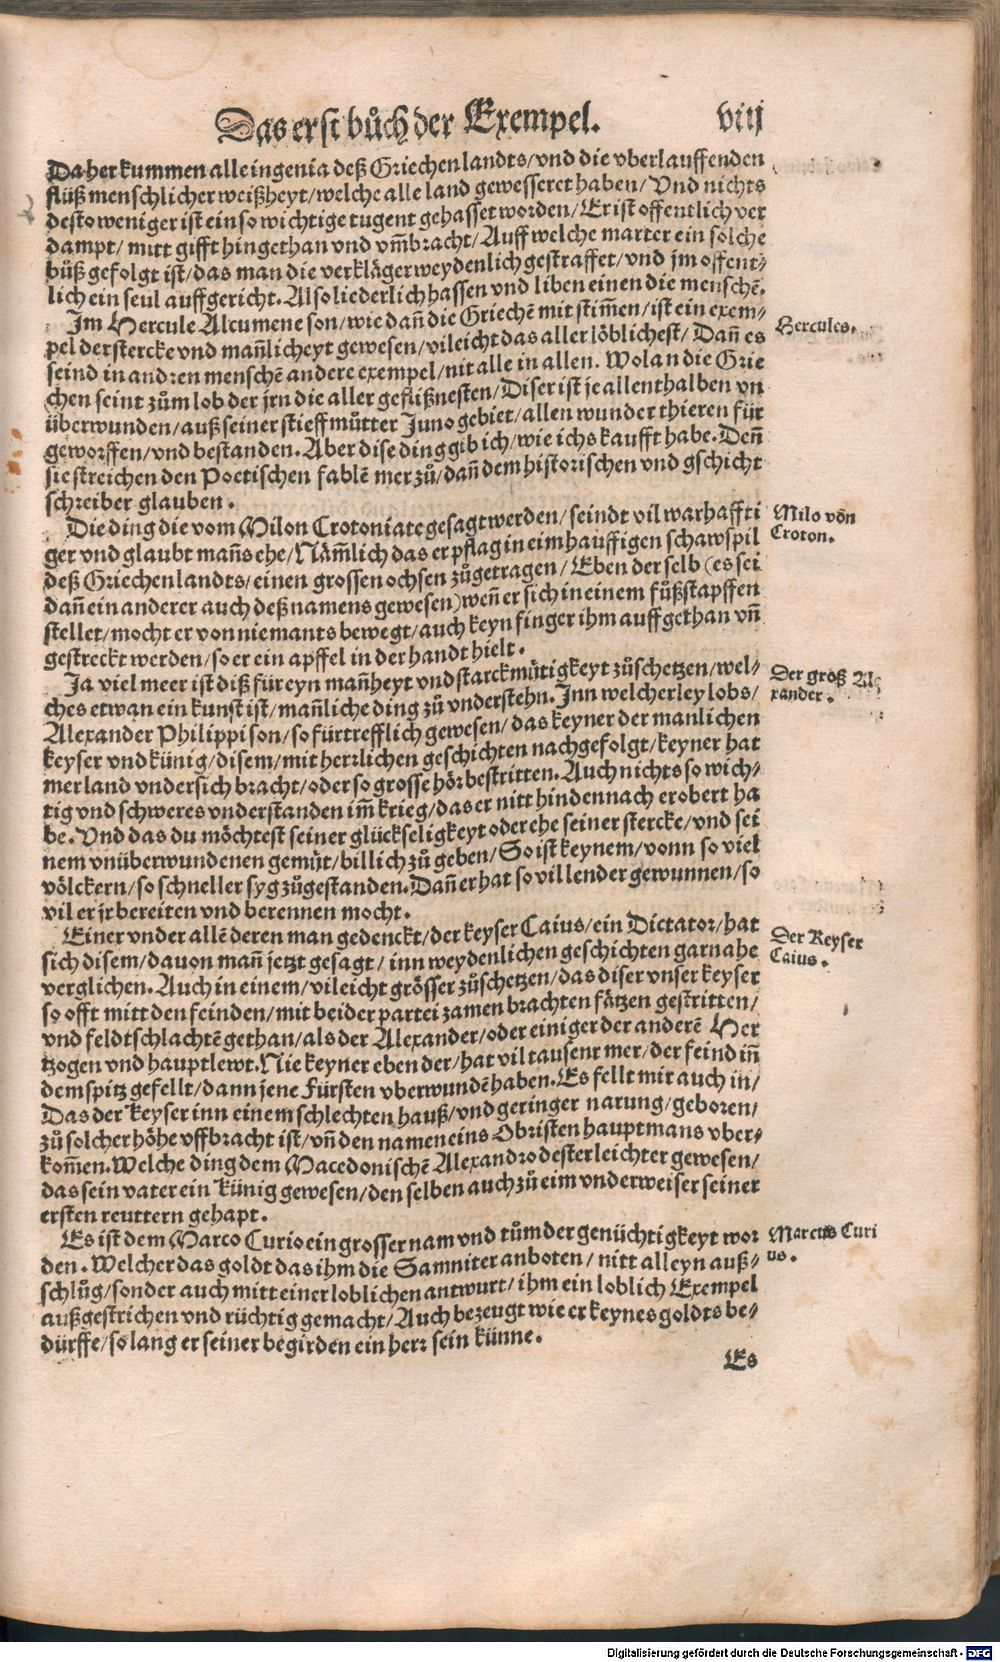 Das erst bůch der Exempel. viij
Daher kummen alle ingenia deß Griechenlandts/vnd die vberlauffenden
flüß menschlicher weißheyt/welche alle land gewesseret haben/Vnd nichts
desto weniger ist ein so wichtige tugent gehasset worden/Er ist offentlich ver
dampt/mitt gifft hingethan vnd vm̄bracht/Auff welche marter ein solche
bůß gefolgt ist/das man die verkläger weydenlich gestraffet/vnd jm offent-
lich ein seul auffgericht. Also liederlich hassen vnd liben einen die menschē.
Im Hercule Alcumene son/wie dañ die Griechē mit stim̄en/ist ein exem-
Hercules.
pel der stercke vnd mañlicheyt gewesen/vileicht das aller löblichest/Dañ es
seind in andren menschē andere exempel/nit alle in allen. Wolan die Grie
chen seint zům lob der jrn die aller geflißnesten/Diser ist je allenthalben vn
überwunden/auß seiner stieffmůtter Juno gebiet/allen wunder thieren für
geworffen/vnd bestanden. Aber dise ding gib ich/wie ichs kaufft habe. Deñ
sie streichen den Poetischen fablē mer zů/dañ dem historischen vnd gschicht
schreiber glauben.
Die ding die vom Milon Crotoniate gesagt werden/seindt vil warhaffti
Milo vōn
Croton.
ger vnd glaubt mañs ehe/Näm̄lich das er pflag in eim hauffigen schawspil
deß Griechenlandts/einen grossen ochsen zůgetragen/Eben der selb (es sei
dañ ein anderer auch deß namens gewesen) weñ er sich in einem fůßstapffen
stellet/mocht er von niemants bewegt/auch keyn finger ihm auffgethan vñ
gestreckt werden/so er ein apffel in der handt hielt.
Ja viel meer ist diß für eyn mañheyt vnd starckmütigkeyt zůschetzen/wel-
Der groß Ale
xander.
ches etwan ein kunst ist/mañliche ding zů vnderstehn. Inn welcherley lobs/
Alexander Philippi son/so fürtrefflich gewesen/das keyner der manlichen
keyser vnd künig/disem/mit herrlichen geschichten nachgefolgt/keyner hat
mer land vndersich bracht/oder so grosse hör bestritten. Auch nichts so wich-
tig vnd schweres vnderstanden im̄ krieg/das er nitt hindennach erobert ha
be. Vnd das du möchtest seiner glückseligkeyt oder ehe seiner stercke/vnd sei
nem vnüberwundenen gemüt/billich zů geben/So ist keynem/vonn so viel
völckern/so schneller syg zůgestanden. Dañ er hat so vil lender gewunnen/so
vil er jr bereiten vnd berennen mocht.
Einer vnder allē deren man gedenckt/der keyser Caius/ein Dictator/hat
Der Keyser
Caius.
sich disem/dauon mañ jetzt gesagt/inn weydenlichen geschichten gar nahe
verglichen. Auch in einem/vileicht grösser zůschetzen/das diser vnser keyser
so offt mitt den feinden/mit beider partei zamen brachten fätzen gestritten/
vnd feldtschlachtē gethan/als der Alexander/oder einiger der anderē Her
tzogen vnd hauptlewt. Nie keyner eben der/hat vil tausent mer/der feind iñ
dem spitz gefellt/dann jene Fürsten vberwundē haben. Es fellt mir auch in/
Das der keyser inn einem schlechten hauß/vnd geringer narung/geboren/
zů solcher höhe vffbracht ist/vñ den namen eins Obristen hauptmans vber-
kom̄en. Welche ding dem Macedonischē Alexandro dester leichter gewesen/
das sein vater ein künig gewesen/den selben auch zů eim vnderweiser seiner
ersten reuttern gehapt.
Es ist dem Marco Curio ein grosser nam vnd tům der genüchtigkeyt wor
Marcus Curi
us.
den. Welcher das goldt das ihm die Samniter anboten/nitt alleyn auß-
schlůg/sonder auch mitt einer loblichen antwurt/ihm ein loblich Exempel
außgestrichen vnd rüchtig gemacht/Auch bezeugt wie er keynes goldts be-
dürffe/so lang er seiner begirden ein herr sein künne.
Es
Digitalisierung gefördert durch die Deutsche Forschungsgemeinschaft - DFG